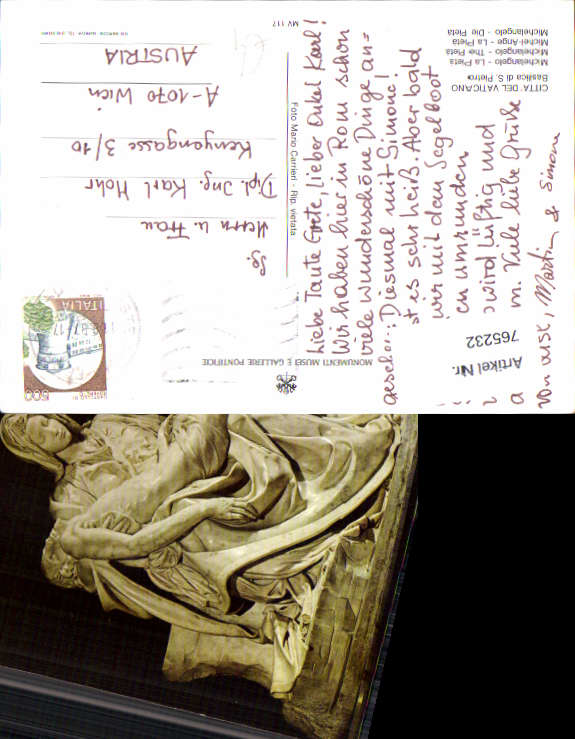 CITTA' DEL VATICANO
Basilica di S. Pietro
Michelangelo - La Pietà
Michelangelo - The Pietà
Michel-Ange - La Pietà
Michelangelo - Die Pietà
MV 117
Foto Mario Carrieri - Rip. vietata
MONUMENTI MUSEI E GALLERIE PONTIFICIE
Artikel Nr.
765232
500
ITALIA
Liebe Tante Grete, lieber Onkel Karl!
Wir haben hier in Rom schon
viele wunderschöne Dinge an=
geseh...: Diesmal mit Simone!
st es sehr heiß. Aber bald
wir mit dem Segelboot
en umrunden
wird luftig und
m. Viele liebe Grüße
Martin & Simone
Herrn u. Frau
Dipl. Ing. Karl Mohr
Kenyongasse 3/10
A-1070 Wien
AUSTRIA